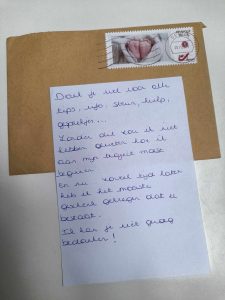 Dank je wel voor alle
tips, info, steun, hulp,
gesprekjes...
Zonder dat zou ik niet
hebben geweten hoe ik
aan mijn traject moest
beginnen
En nu zoveel tijd later
heb ik het mooiste
geschenk gekregen dat er
bestaat.
Ik kan je niet genoeg
bedanken!